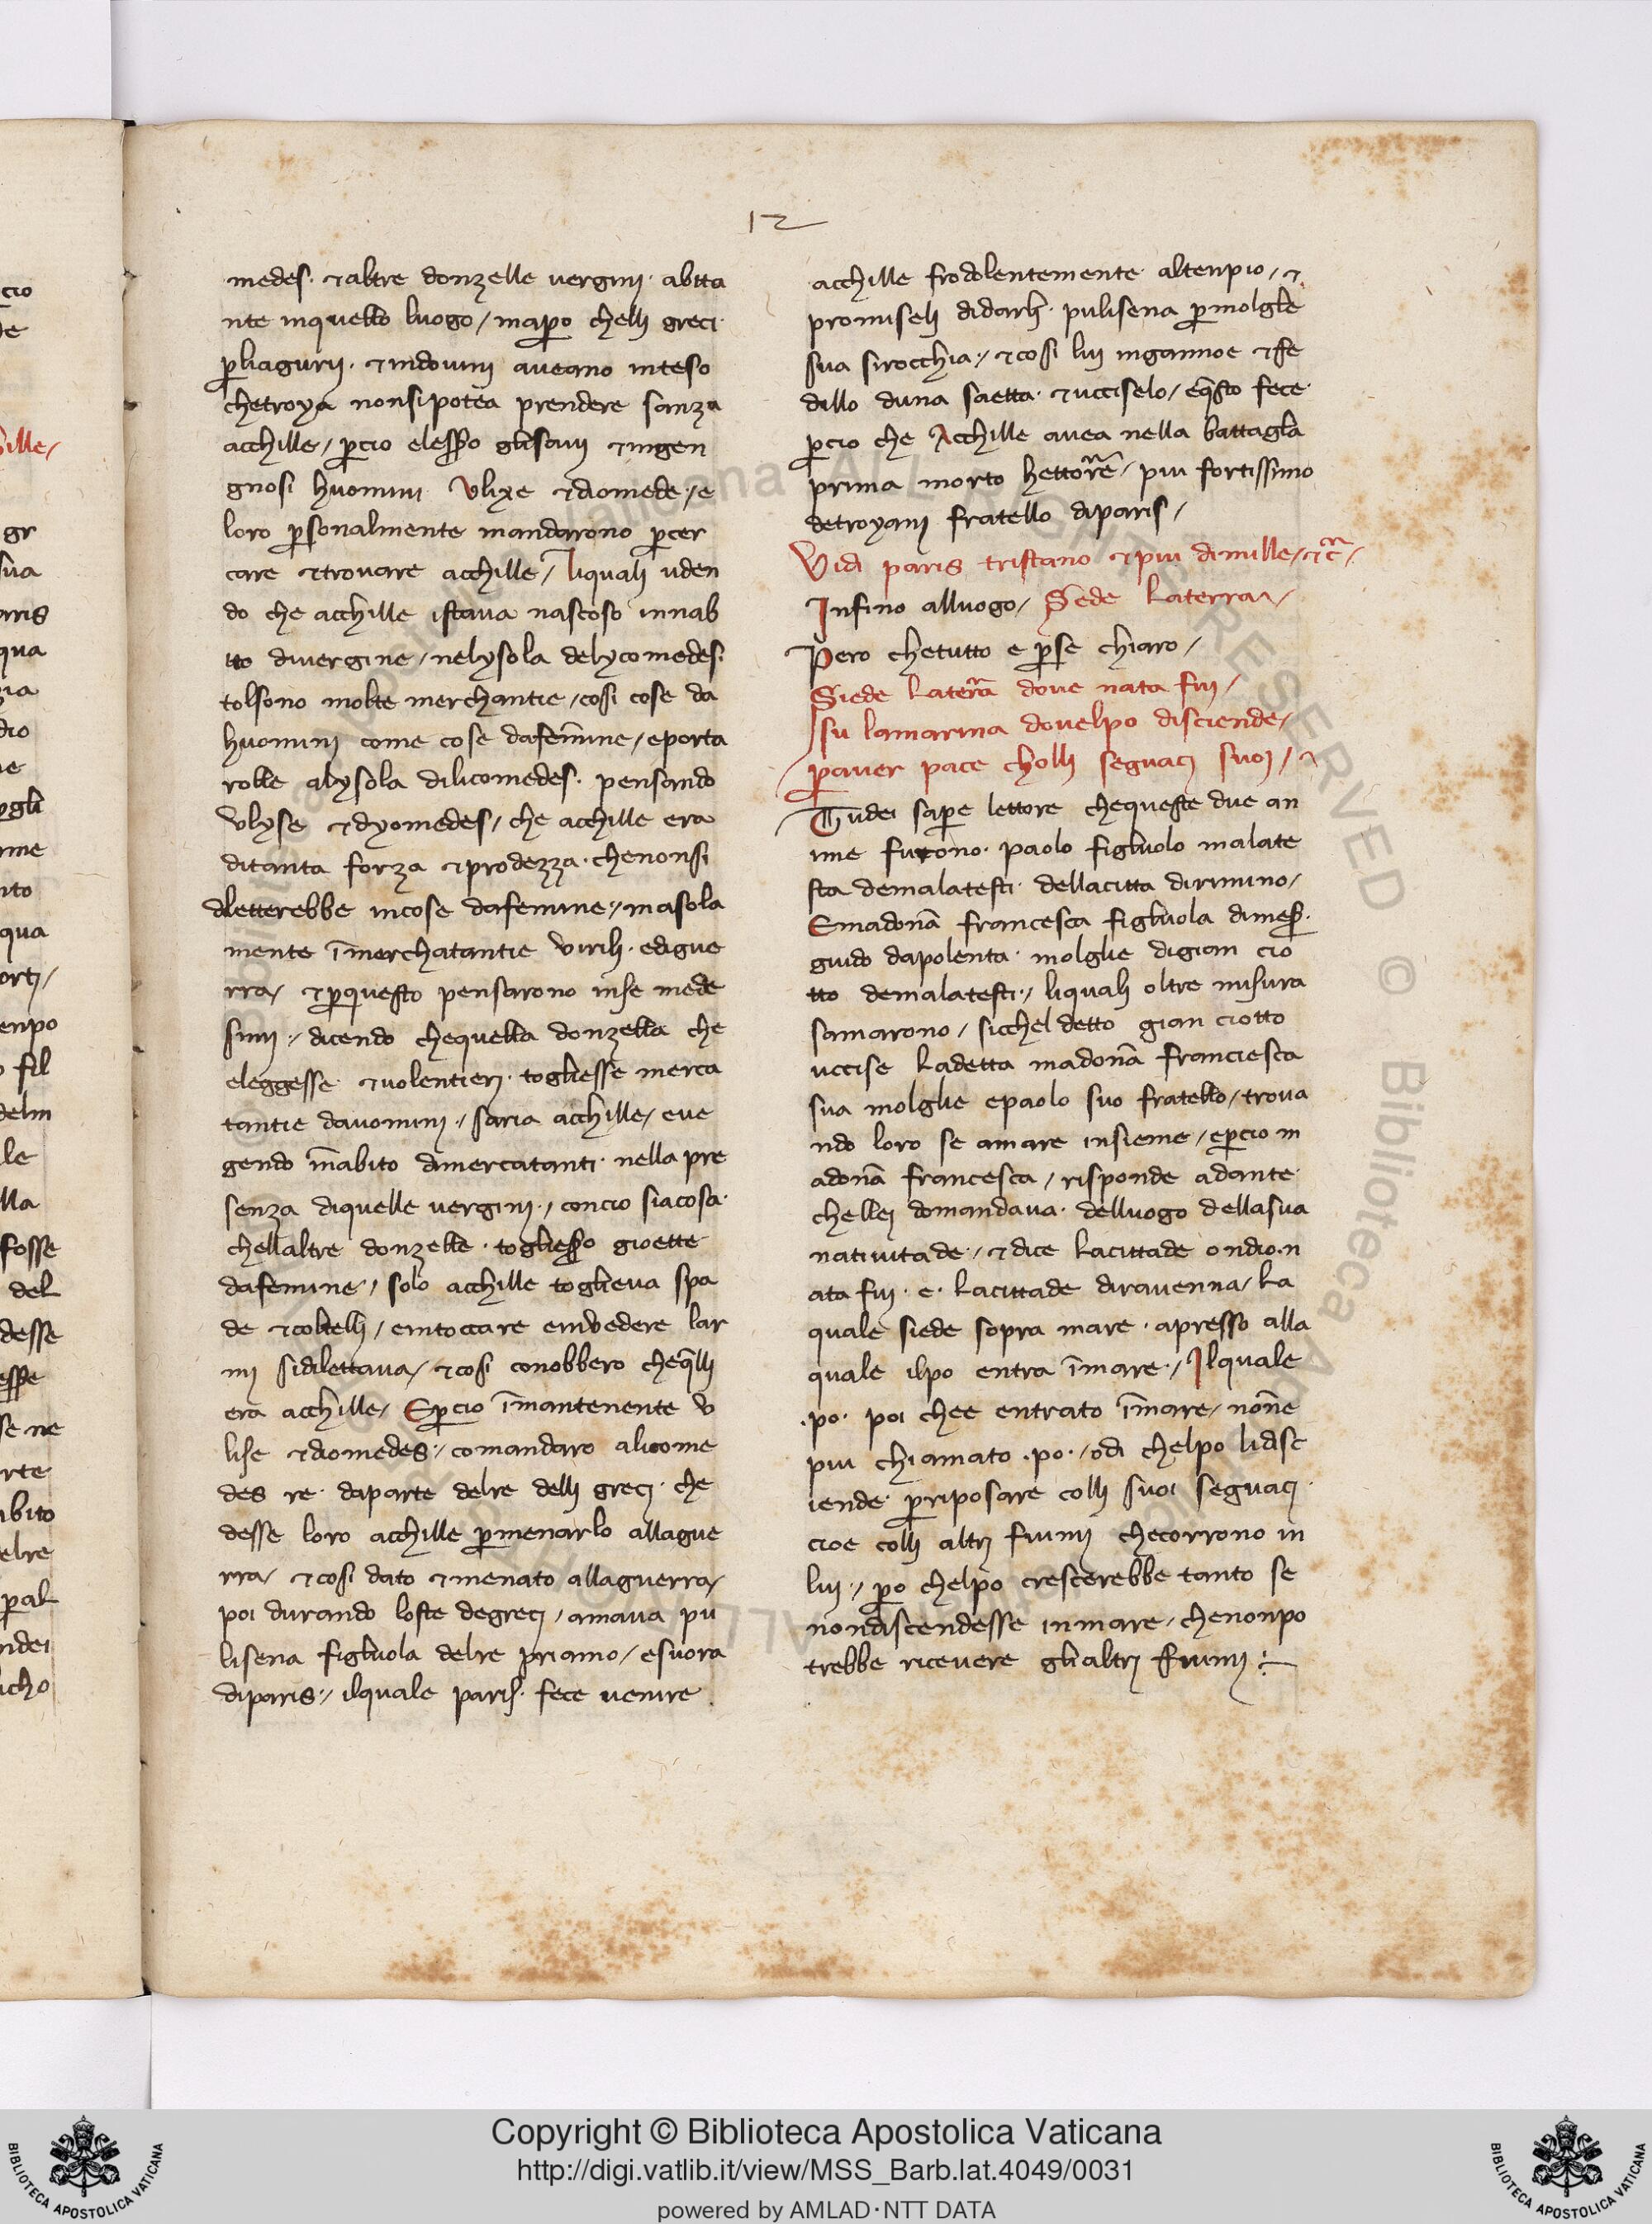 12
medes· ⁊altre donzelle vergini· abita
nte inquello luogo/ mapero chelli greci·
pliagurij· ⁊indouini aveano inteso
chetroya nonsipotea prendere sanza
acchille/ pcio elesso glisavij ⁊ingen
gnosi huomini Vlixe ⁊diomede·/ e
loro psonalmente mandarono pcer
care ⁊trovare acchille/ liquali uden
do che acchille istava nascoso innab
ito divergine/ nelysola delycomedes·
tolsono molte merchantie/ cosi cose da
huomini come cose dafemine/ eporta
rolle alysola dilicomedes· pensando
Vlyse ⁊dyomedes/ che acchille era
ditanta forza ⁊prodezza· chenonsi
diletterebbe incose dafemine·/ masola
mente īmerchatantie virili· edigue
rra/ ⁊pquesto pensarono inse mede
simi·/ dicendo chequella donzella che
eleggesse ⁊volentieri· togliesse merca
tantie davomini·/ saria acchille/ eve
gendo īnabito dimercatanti· nella pre
senza diquelle vergini·/ concio siacosa·
chellaltre donzelle· togliesso gioette
dafemine·/ solo acchille toglieva spa
de ⁊coltelli/ eintoccare einvedere lar
mi sidilettava/ ⁊cosi conobbero cheq̄lli
era acchille/ Epcio īmantenente v
lise ⁊diomedes·/ comandaro alicome
des re· daparte delre delli greci· che
desse loro acchille pmenarlo allague
rra/ ⁊cosi dato ⁊menato allaguerra/
poi durando loste degreci/ amava pu
lisena figliuola delre priamo/ esuora
diparis·/ ilquale paris· fece venire
acchille frodolentemente altenpio/ ⁊
promiseli didarli· pulisena pmolglie
sua sirocchia·/ ⁊cosi lui ingannoe ⁊fe
dillo duna saetta· ⁊ucciselo/ eq̄sto fece·
pcio che Acchille avea nella battaglia
prima morto hettore/ piu fortissimo
detroyani fratello diparis/
Vidi paris tristano ⁊piu dimille/ ⁊c̄/
Infino alluogo/ Siede laterra/
Pero chetutto e pse chiaro/
Siede laterra dove nata fui/
su lamarina dovelpo disciende/
paver pace cholli seguaci suoi/
Tudei sapere lettore chequeste due an
ime furono· paolo figliuolo malate
sta demalatesti· dellacitta dirimino/
Emadonā francesca figliuola dimess·
guido dapolenta· molglie digian cio
tto demalatesti·/ liquali oltre misura
samarono/ sicchel detto gian ciotto
uccise ladetta madonā franciesca
sua molglie epaolo suo fratello/ trova
ndo loro se amare insieme/ epcio m
adonā francesca/ risponde adante·
chellei domandava· delluogo dellasua
nativitade·/ ⁊dice lacittade ondio·n
ata fui· e· lacittade diravenna/ la
quale siede sopra mare· apresso alla
quale ilpo entra īmare·/ Ilquale
·po· poi chee entrato īmare/ nonē
piu chiamato ·po·/ odi chelpo lidisc
iende· priposare colli suoi seguaci·
cioe colli altri fiumi checorrono in
lui·/ po chelpo crescerebbe tanto se
nondiscendesse inmare/ chenonpo
trebbe ricevere glialtri fiumi :—
Copyright © Biblioteca Apostolica Vaticana
http://digi.vatlib.it/view/MSS_Barb.lat.4049/0031
powered by AMLAD·NTT DATA
BIBLIOTECA APOSTOLICA VATICANA
BIBLIOTECA APOSTOLICA VATICANA